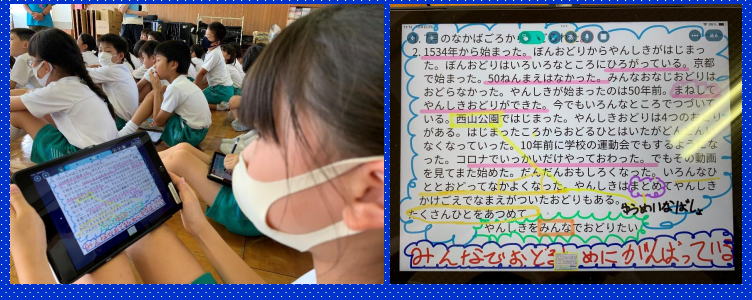 のなかばごろか
2. 1534年から始まった。ぼんおどりからやんしきがはじまっ
た。ぼんおどりはいろいろなところにひろがっている。京都
で始まった。50ねんまえはなかった。みんなおなじおどりは
おどらなかった。やんしきが始まったのは50年前。まねして
やんしきおどりができた。今でもいろんなところでつづいて
いる。西山公園ではじまった。やんしきおどりは4つのおどり
がある。はじまったころからおどるひとはいたがどんどん
なくなっていった。10年前に学校の運動会でもするようにな
った。コロナでいっかいだけやっておわった。でもその動画
を見てまた始めた。だんだんおもしろくなった。いろんなひ
ととおどってなかよくなった。やんしきはまとめてやんしき
かけごえでなまえがついたおどりもある。
たくさんひとをあつめて
やんしきをみんなでおどりたい
みんなでおど めにがんばっている